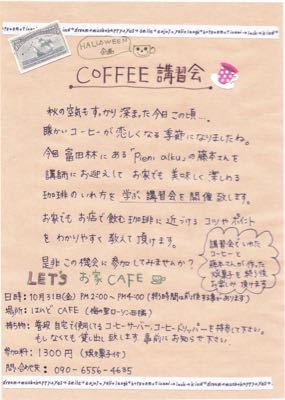 HALLOWEEN
企画
COFFEE 講習会
秋の空気もすっかり深まった今日この頃…。
暖かいコーヒーが恋しくなる季節になりましたね。
今回 富田林にある「Pieni alku」の藤本さんを
講師にお迎えして お家でも 美味しく 楽しめる
珈琲のいれ方を 学ぶ 講習会を開催 致します。
お家でも お店で飲む珈琲に 近づける コツや ポイント
を わかりやすく 教えて 頂けます。
是非 この機会に 参加してみませんか?
講習会でいれた
コーヒーと
藤本さんが作った
焼菓子を 終了後
お楽しみ頂けます
LET's お家 CAFE
日時:10月31日(金) PM2:00〜PM4:00 (終了時間は前後する事があります)
場所:はんど CAFE
持ち物:普段 自宅で使用してる コーヒーサーバー、コーヒードリッパーを持参して下さい。
もしなくても 貸し出し 致します 事前に お知らせ 下さい。
参加料:1300円 (焼き菓子付)
問い合わせ先: 090-6556-4635